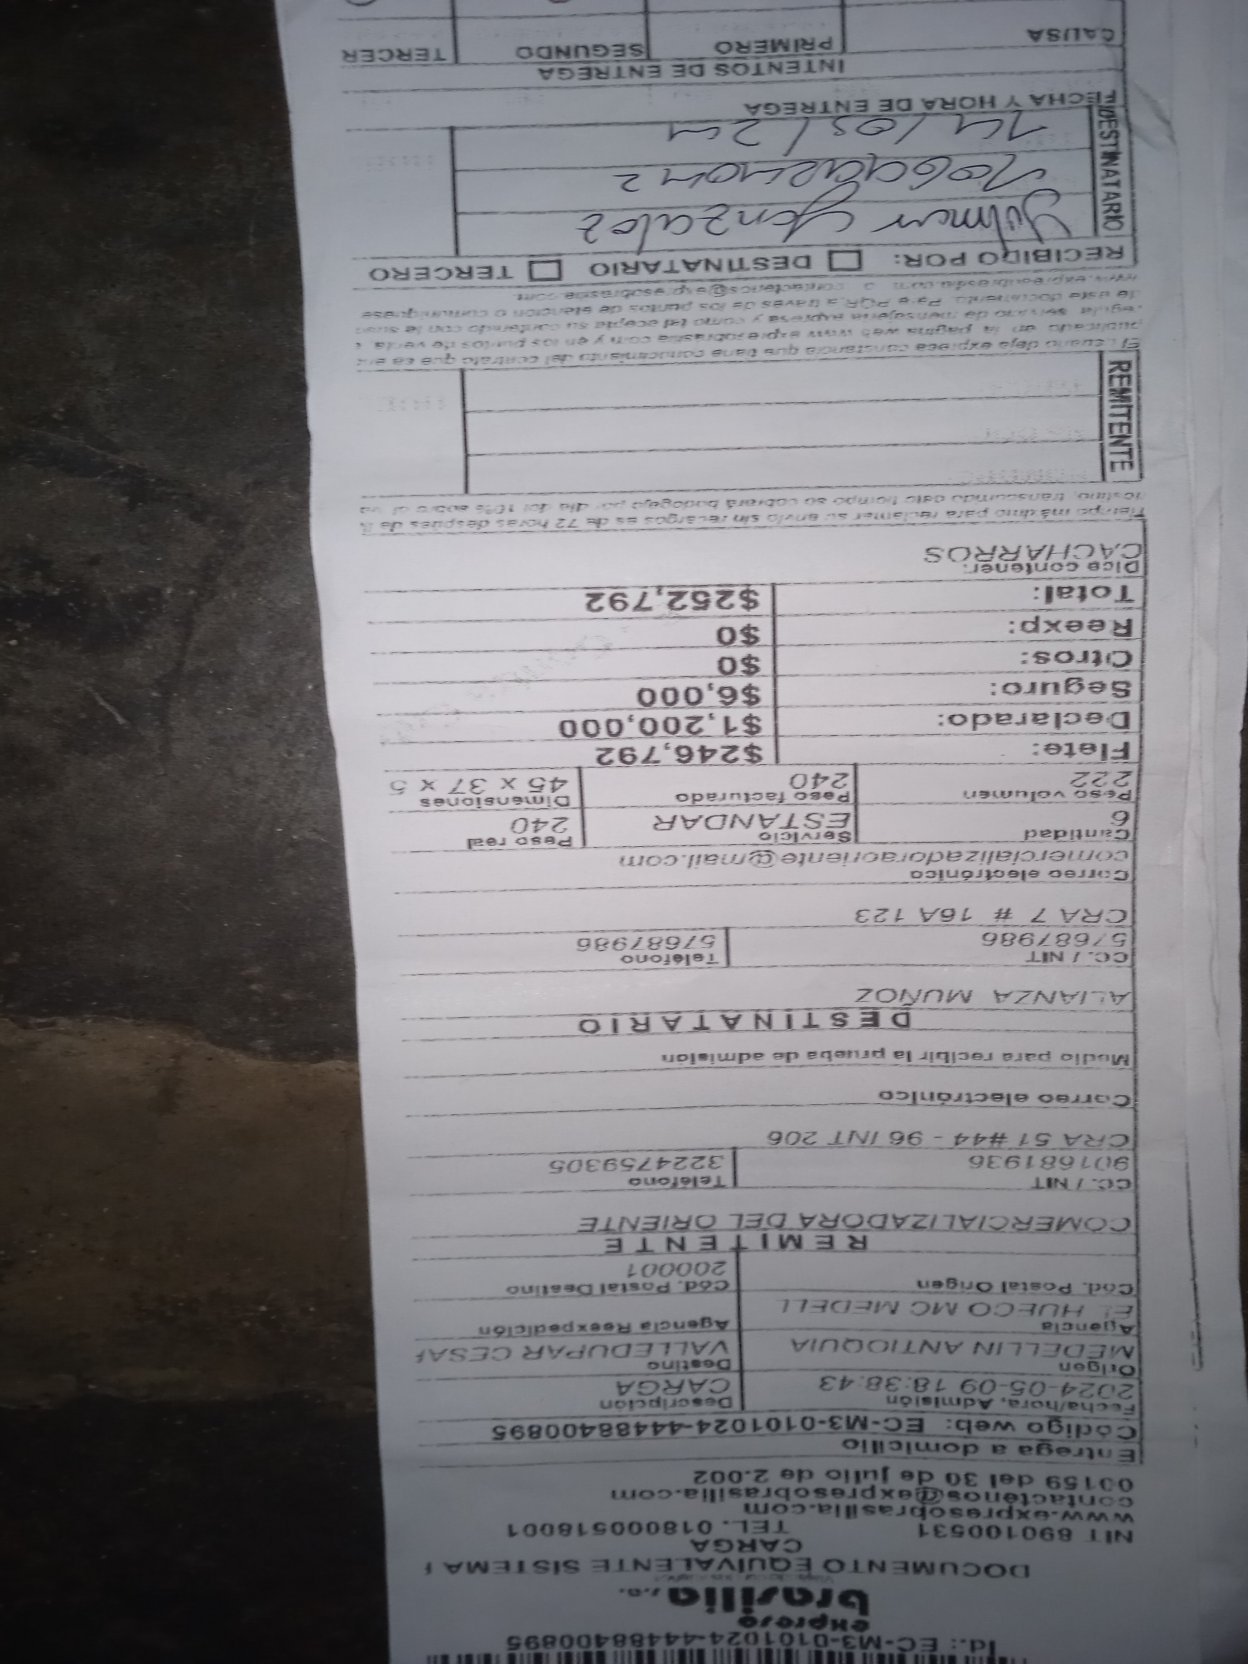 Id.: EC-M3-0101024-44488400895
expreso
brasilia s.a.
DOCUMENTO EQUIVALENTE SISTEMA
CARGA
NIT 890100531 TEL. 018000518001
www.expresobrasilia.com
contactenos@expresobrasilia.com
00159 del 30 de julio de 2.002
Entrega a domicilio
Código web: EC-M3-0101024-44488400895
Fecha/hora, Admisión Descripción
2024-05-09 18:38:43 CARGA
Origen Destino
MEDELLIN ANTIOQUIA VALLEDUPAR CESAR
Agencia Agencia Reexpedición
EL HUECO MC MEDELL
Cód. Postal Origen Cód. Postal Destino
200001
REMITENTE
COMERCIALIZADORA DEL ORIENTE
CC. / NIT Teléfono
901681936 3224759305
CRA 51 #44 - 96 INT 206
Correo electrónico
Medio para recibir la prueba de admision
DESTINATARIO
ALIANZA MUÑOZ
CC. / NIT Teléfono
57687986 57687986
CRA 7 # 16A 123
Correo electrónico
comercializadoraoriente@mail.com
Cantidad Servicio Peso real
6 ESTANDAR 240
Peso volumen Peso facturado Dimensiones
222 240 45 x 37 x 5
Flete: $246,792
Declarado: $1,200,000
Seguro: $6,000
Otros: $0
Reexp: $0
Total: $252,792
Dice contener:
CACHARROS
Tiempo máximo para reclamar su envío sin recargos es de 72 horas después de
destino, transcurrido este tiempo se cobrará bodegaje por día del 10% sobre el
REMITENTE
El usuario deja expresa constancia que tiene conocimiento del contrato que se
publicado en la pagina web www.expresobrasilia.com y en los puntos de venta,
regula servicio de mensajeria expresa y como tal acepta su contenido con la
de este documento. Para PQR a traves de los puntos de atencion o comuniquese
www.expresobrasilia.com o contactenos@expresobrasilia.com
RECIBIDO POR: DESTINATARIO TERCERO
DESTINATARIO
Yulmar Gonzalez
14/05/24
FECHA Y HORA DE ENTREGA
INTENTOS DE ENTREGA
CAUSA PRIMERO SEGUNDO TERCER